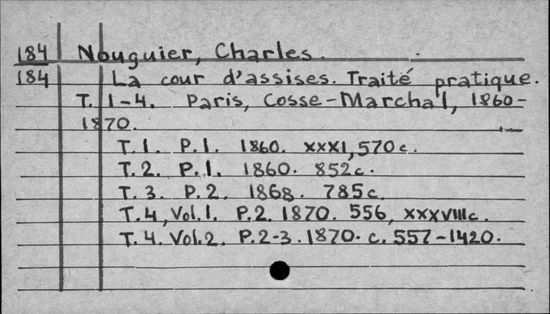 184 Nouguier, Charles.
184 La cour d'assises. Traité pratique.
T. 1-4. Paris, Cosse-Marchal, 1860-
1870.
T. 1. P. 1. 1860. XXXI, 570 c.
T. 2. P. 1. 1860. 852c.
T. 3. P. 2. 1868. 785c.
T. 4, Vol. 1. P. 2. 1870. 556, XXXVIIIc.
T. 4. Vol. 2. P. 2-3. 1870. c. 557-1420.